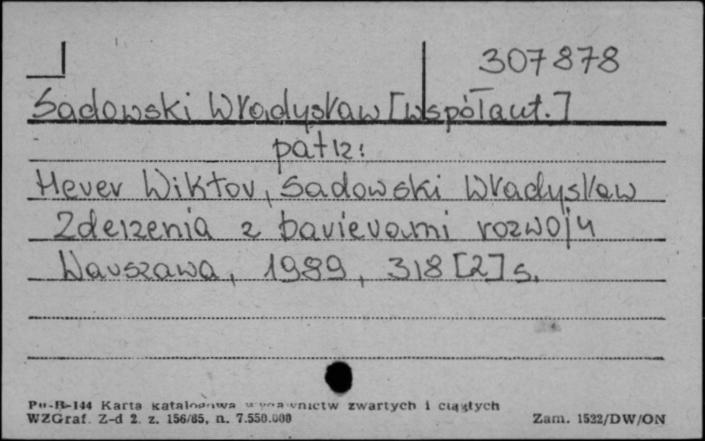 307878
Sadowski Władysław [współaut.]
patrz:
Herer Wiktor, Sadowski Władysław
Zderzenia z barierami rozwoju
Warszawa, 1989, 318 [2] s.
Pu-B-144 Karta katalogowa wydawnictw zwartych i ciągłych
WZGraf. Z-d 2. z. 156/65, n. 7.550.000 Zam. 1532/DW/ON